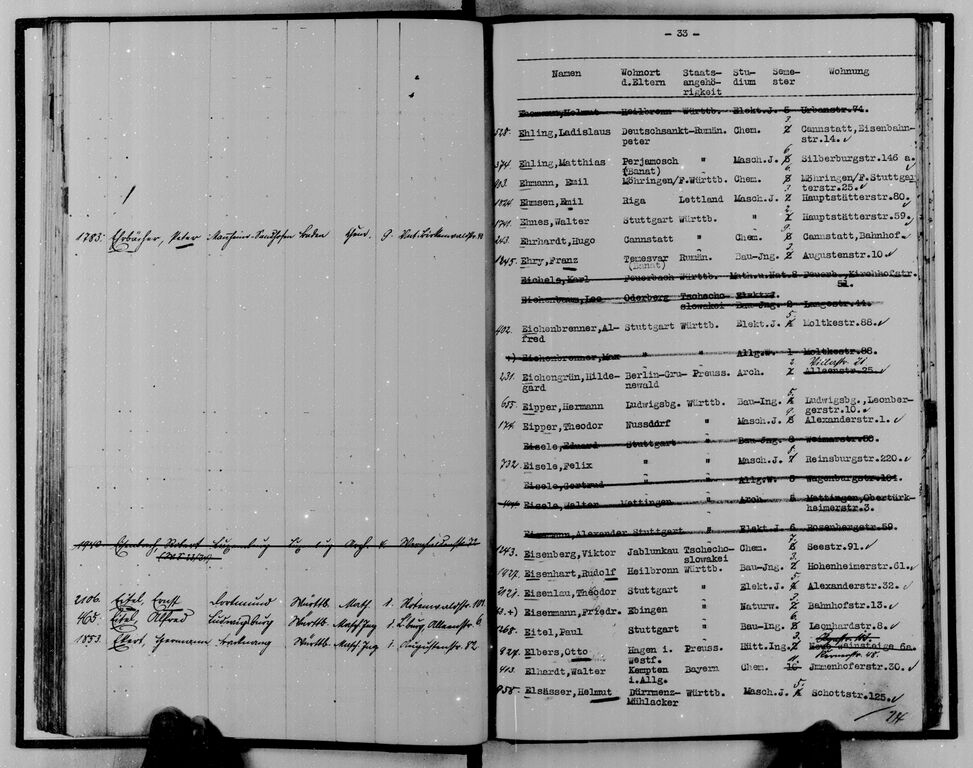 1783. Ehrbächer, Peter Mannheim-Sandhofen Baden
2106. Eitel, Ernst Dortmund Württb. Math. 1.
465. Eitel, Alfred Ludwigsburg Württb. Masch.Ing 1. L'burg, Alleenstr. 6
1853. Ekert, Hermann Backnang Württb. Masch.Ing 1. Augustenstr. 82
- 33 -
Namen Wohnort d.Eltern Staats-angehö-rigkeit Stu-dium Seme-ster Wohnung
Ehemann,Helmut Heilbronn Württb. Elekt.J. 5 Urbanstr.74.
528. Ehling,Ladislaus Deutschsankt- Rumän. Chem. 3. Cannstatt,Eisenbahn-
peter str.14.
374. Ehling,Matthias Perjamosch " Masch.J. 6 Silberburgstr.146 a.
(Banat)
Ehmann, Emil Möhringen/F. Württb. Chem. Möhringen/F.Stuttgar
terstr.25.
1824. Ehmsen,Emil Riga Lettland Masch.J. 3 Hauptstätterstr.80.
1741. Ehnes,Walter Stuttgart Württb. " 2 Hauptstätterstr.59.
243. Ehrhardt,Hugo Cannstatt " Chem. 9 Cannstatt,Bahnhof.
1845. Ehry,Franz Temesvar Rumän. Bau-Jng. Augustenstr.10.
(Banat)
Eichele,Karl Feuerbach Württb. Math.u.Nat. 8 Feuerb.,Kirchhofstr.
51.
Eichenbaum,Leo Oderberg Tschecho-slowakei Bau-Jng. 8 Langestr.44.
402. Eichenbrenner,Al- Stuttgart Württb. Elekt.J. 5. Moltkestr.88.
fred
+) Eichenbrenner,Max " " Allg.W. 1 Moltkestr.88.
231. Eichengrün,Hilde- Berlin-Gru- Preuss. Arch. 2 Alleenstr.25.
gard newald
655. Eipper,Hermann Ludwigsbg. Württb. Bau-Ing. 5. Ludwigsbg.,Leonber-
gerstr.10.
174. Eipper,Theodor Nussdorf " Masch.J. 9 Alexanderstr.1.
Eisele,Eduard Stuttgart " Bau-Jng. 8 Weimarstr.38.
732. Eisele,Felix " " Masch.J. 5. Reinsburgstr.220.
Eisele,Gertrud " " Allg.W. 5 Wagenburgstr.161
Eisele,Walter Mettingen " Arch. 5 Mettingen,Obertürk-
heimerstr.3.
Eisemann,Alexander Stuttgart " Elekt.J. 6 Rosenbergstr.59.
1243. Eisenberg,Viktor Jablunkau Tschecho- Chem. 7. Seestr.91.
slowakei
1427. Eisenhart,Rudolf Heilbronn Württb. Bau-Jng. 3. Hohenheimerstr.61.
Eisenlau,Theodor Stuttgart " Elekt.J. 5 Alexanderstr.32.
+) Eisenmann,Friedr. Ebingen " Naturw. Bahnhofstr.13.
1268. Eitel,Paul Stuttgart " Bau-Jng. 6 Leonhardstr.8.
927. Elbers,Otto Hagen i. Preuss. Hütt.Ing. 3 Neue Weinsteige 6a.
Westf.
413. Elhardt,Walter Kempten Bayern Chem. 11 Jmmenhoferstr.30.
i.Allg.
958. Elsässer,Helmut Dürrmenz- Württb. Masch.J. 5. Schottstr.125.
Mühlacker
/214